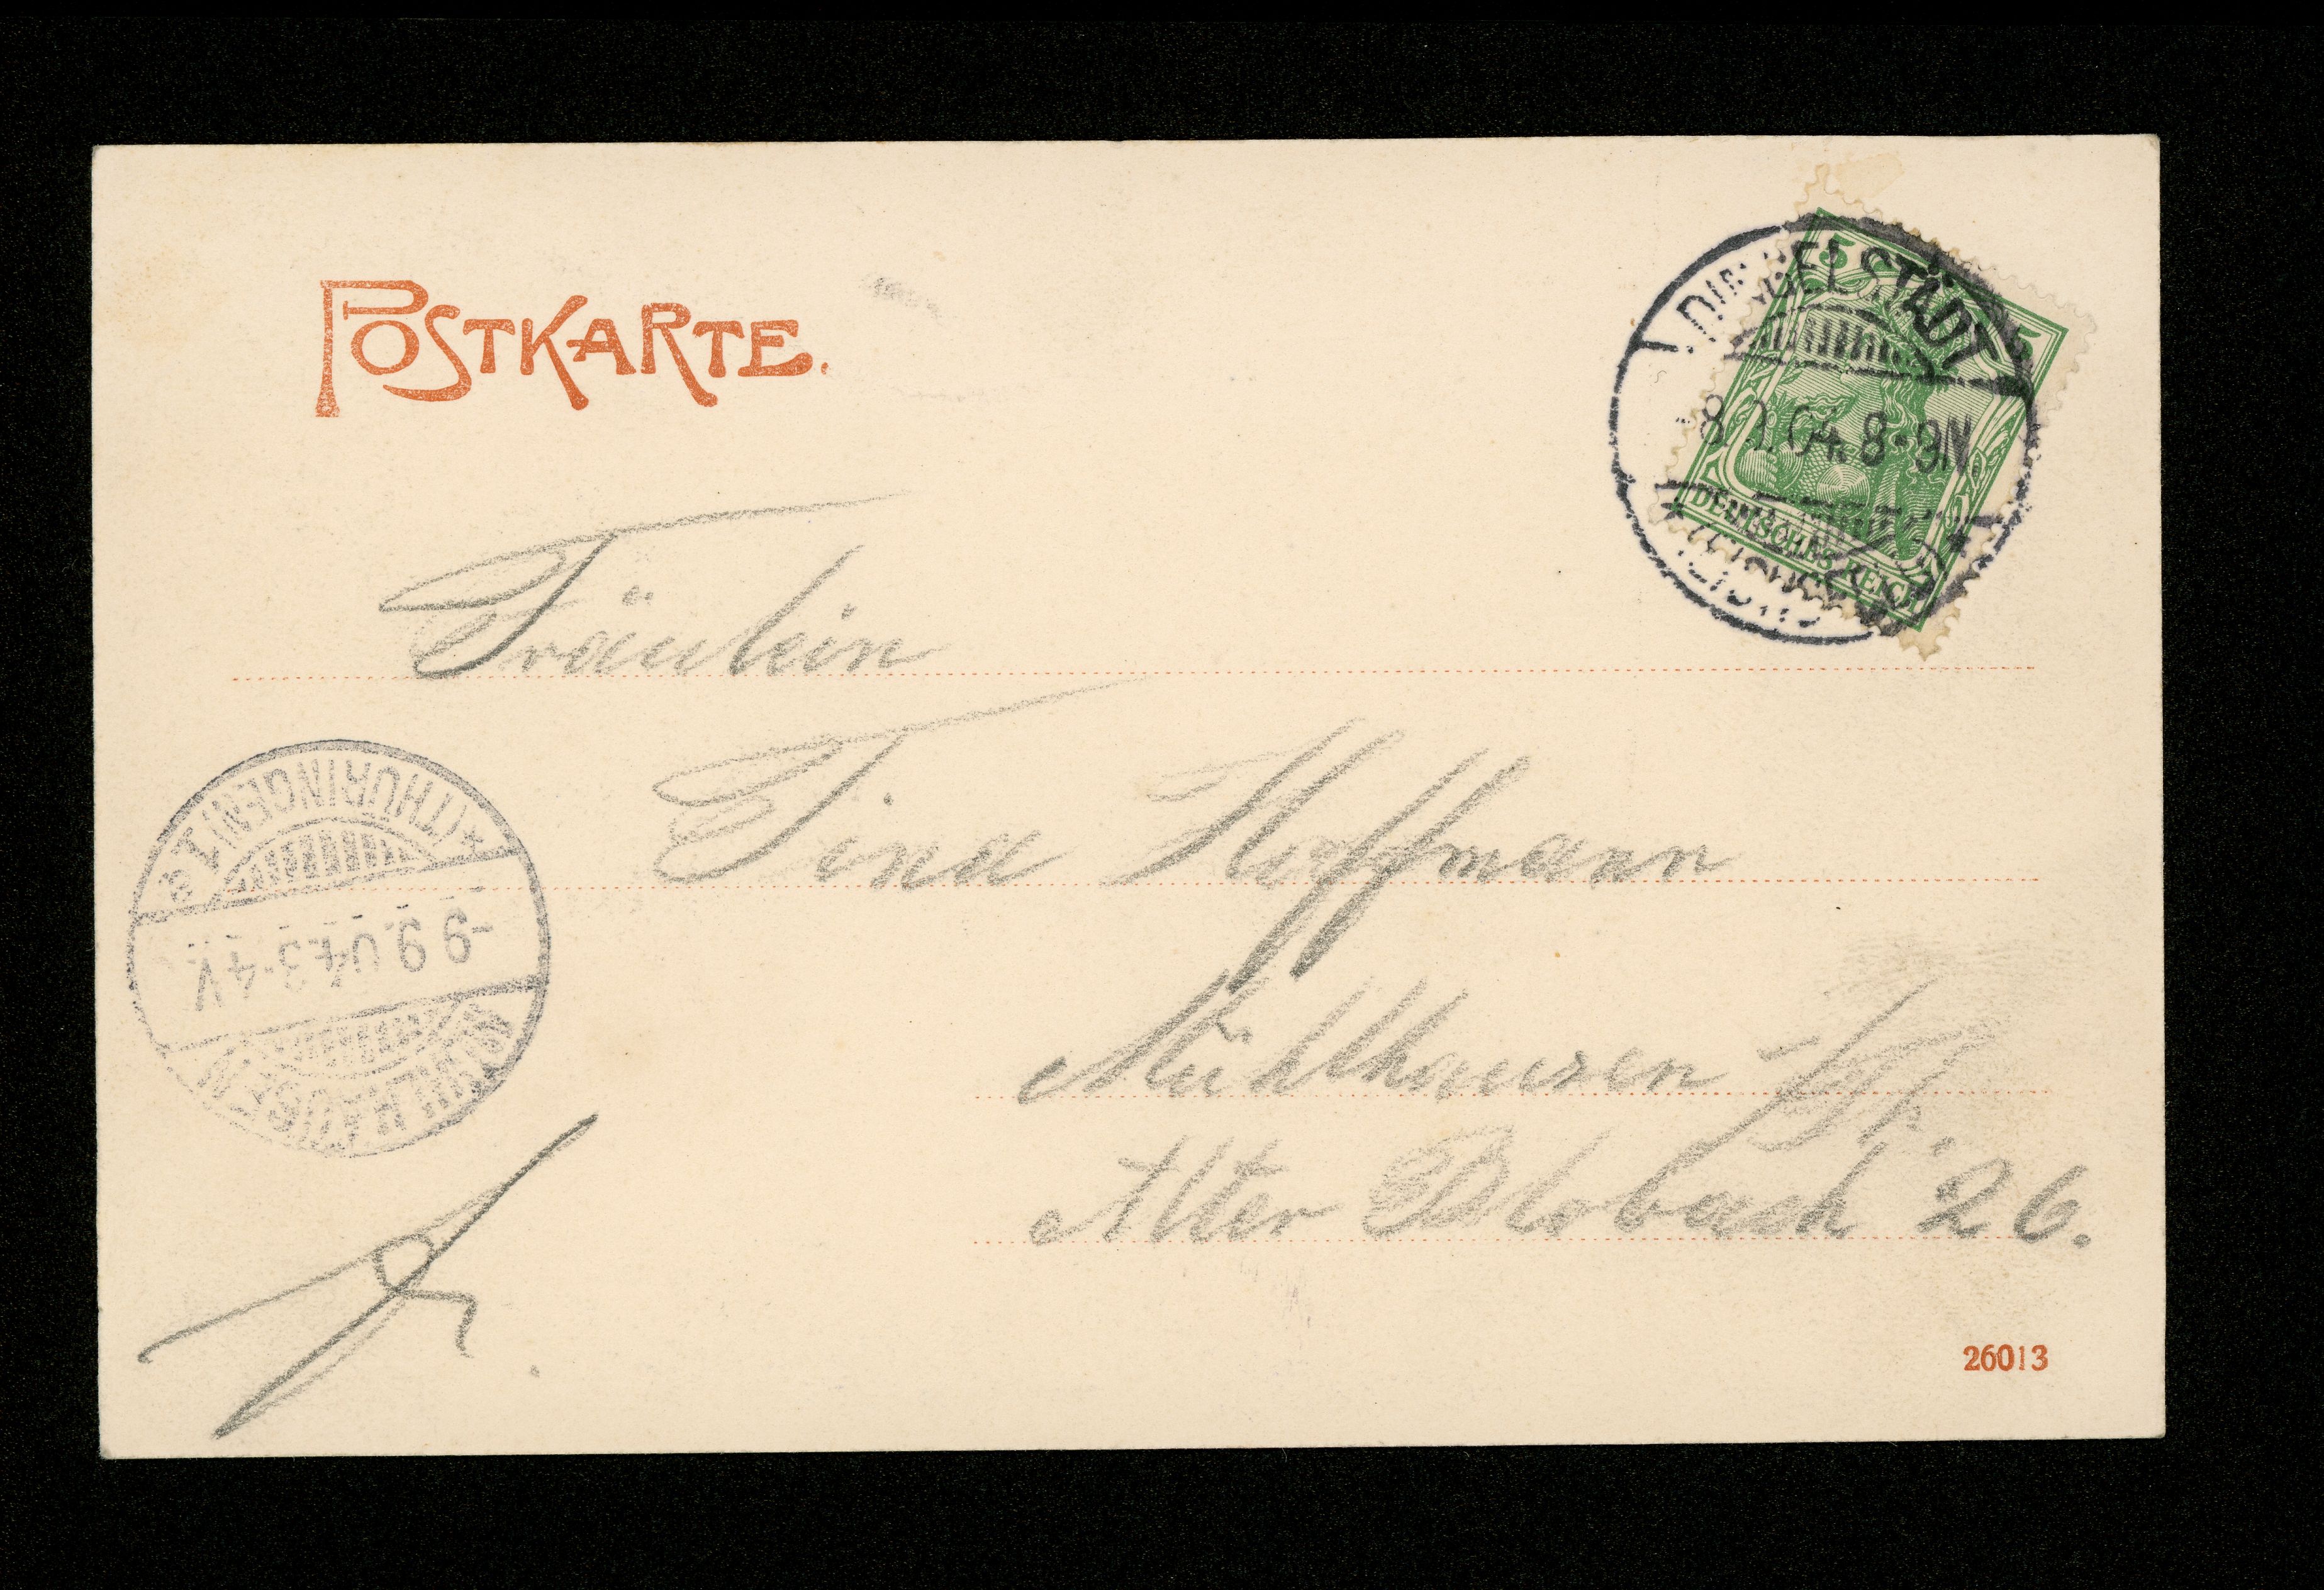 POSTKARTE.
5 5
DINGELSTÄDT
8.9.04. 8-9N.
* (EICHSFELD) *
DEUTSCHES REICH
Fräulein
Tina Hoffmann
Mühlhausen i/Th.
Alter Blobach 26.
* (THÜRINGEN) 1 a
-9.9.04.3-4V.
MÜHLHAUSEN
26013